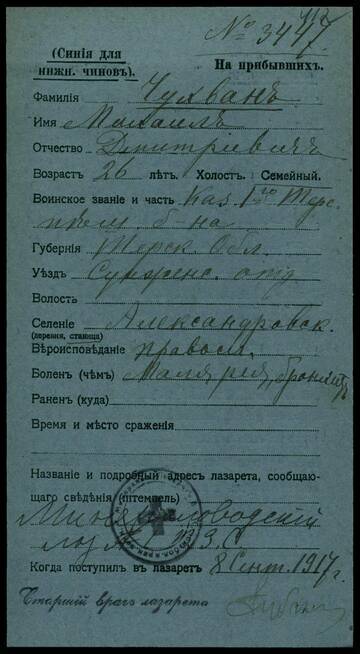 № 3447
(Синія для нижн. чиновъ).
На прибывшихъ.
Фамилія Чухванъ
Имя Михаилъ
Отчество Дмитріевичъ
Возрастъ 26 лѣтъ. Холост. Семейный.
Воинское званіе и часть Каз. 1го Терс.
плас. б-на
Губернія Терск. Обл.
Уѣздъ Сунженс. отд
Волость
Селеніе Александровск.
(деревня, станица)
Вѣроисповѣданіе правосл.
Боленъ (чѣмъ) Малярія, бронхитъ
Раненъ (куда)
Время и мѣсто сраженія
Названіе и подробный адресъ лазарета, сообщаю-
щаго свѣдѣнія (штемпель)
Минераловодскій
лаз. В.З.С.
Когда поступилъ въ лазаретъ 8 Сент. 1917 г.
Старшій врачъ лазарета